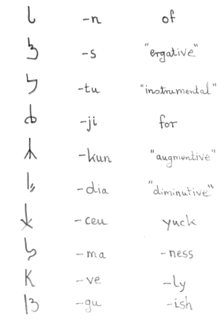 -n of
-s "ergative"
-tu "instrumental"
-ji for
-kun "augmentive"
-dia "diminutive"
-ceu yuck
-ma -ness
-ve -ly
-gu -ish